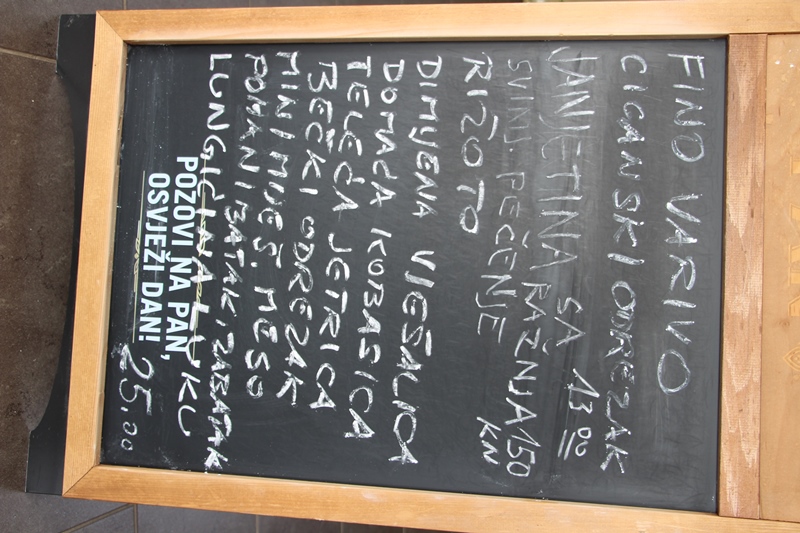 FINO VARIVO
CIGANSKI ODREZAK
JANJETINA SA 13⁰⁰
SVINJ. PEČENJE RAŽNJA 150 KN
RIŽOTO
DIMLJENA VJEŠALICA
DOMAĆA KOBASICA
TELEĆA JETRICA
BEČKI ODREZAK
MINI MIJEŠ. MESO
POHANI BATAK, ZABATAK
LUNGIĆ NA LUKU
POZOVI NA PAN,
OSVJEŽI DAN!
25.00